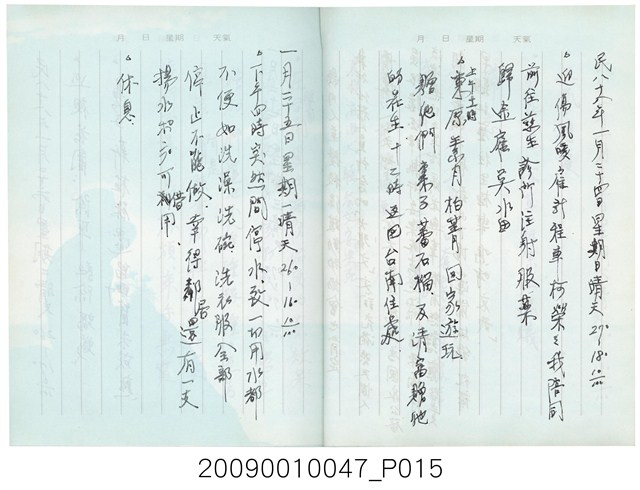 月 日 星期 天氣
民八十八年一月二十四日星期日晴天27.-18.
。迎傷風咳雇計程車柯榮之我陪同
前往益生診所注射服藥
歸途雇吳水田
。上午十時東原素月柏菁月回家遊玩
贈他們棗子蕃石榴及清富贈他
的花生.十二時返回台南住處.
月 日 星期 天氣
一月二十五日星期一晴天26.-16.
。下午四時突然間停水,致一切用水都
不便如洗澡洗碗.洗衣服全部
停止不能做幸得鄰居還有一支
抽水 可借用.
。休息
20090010047_P015